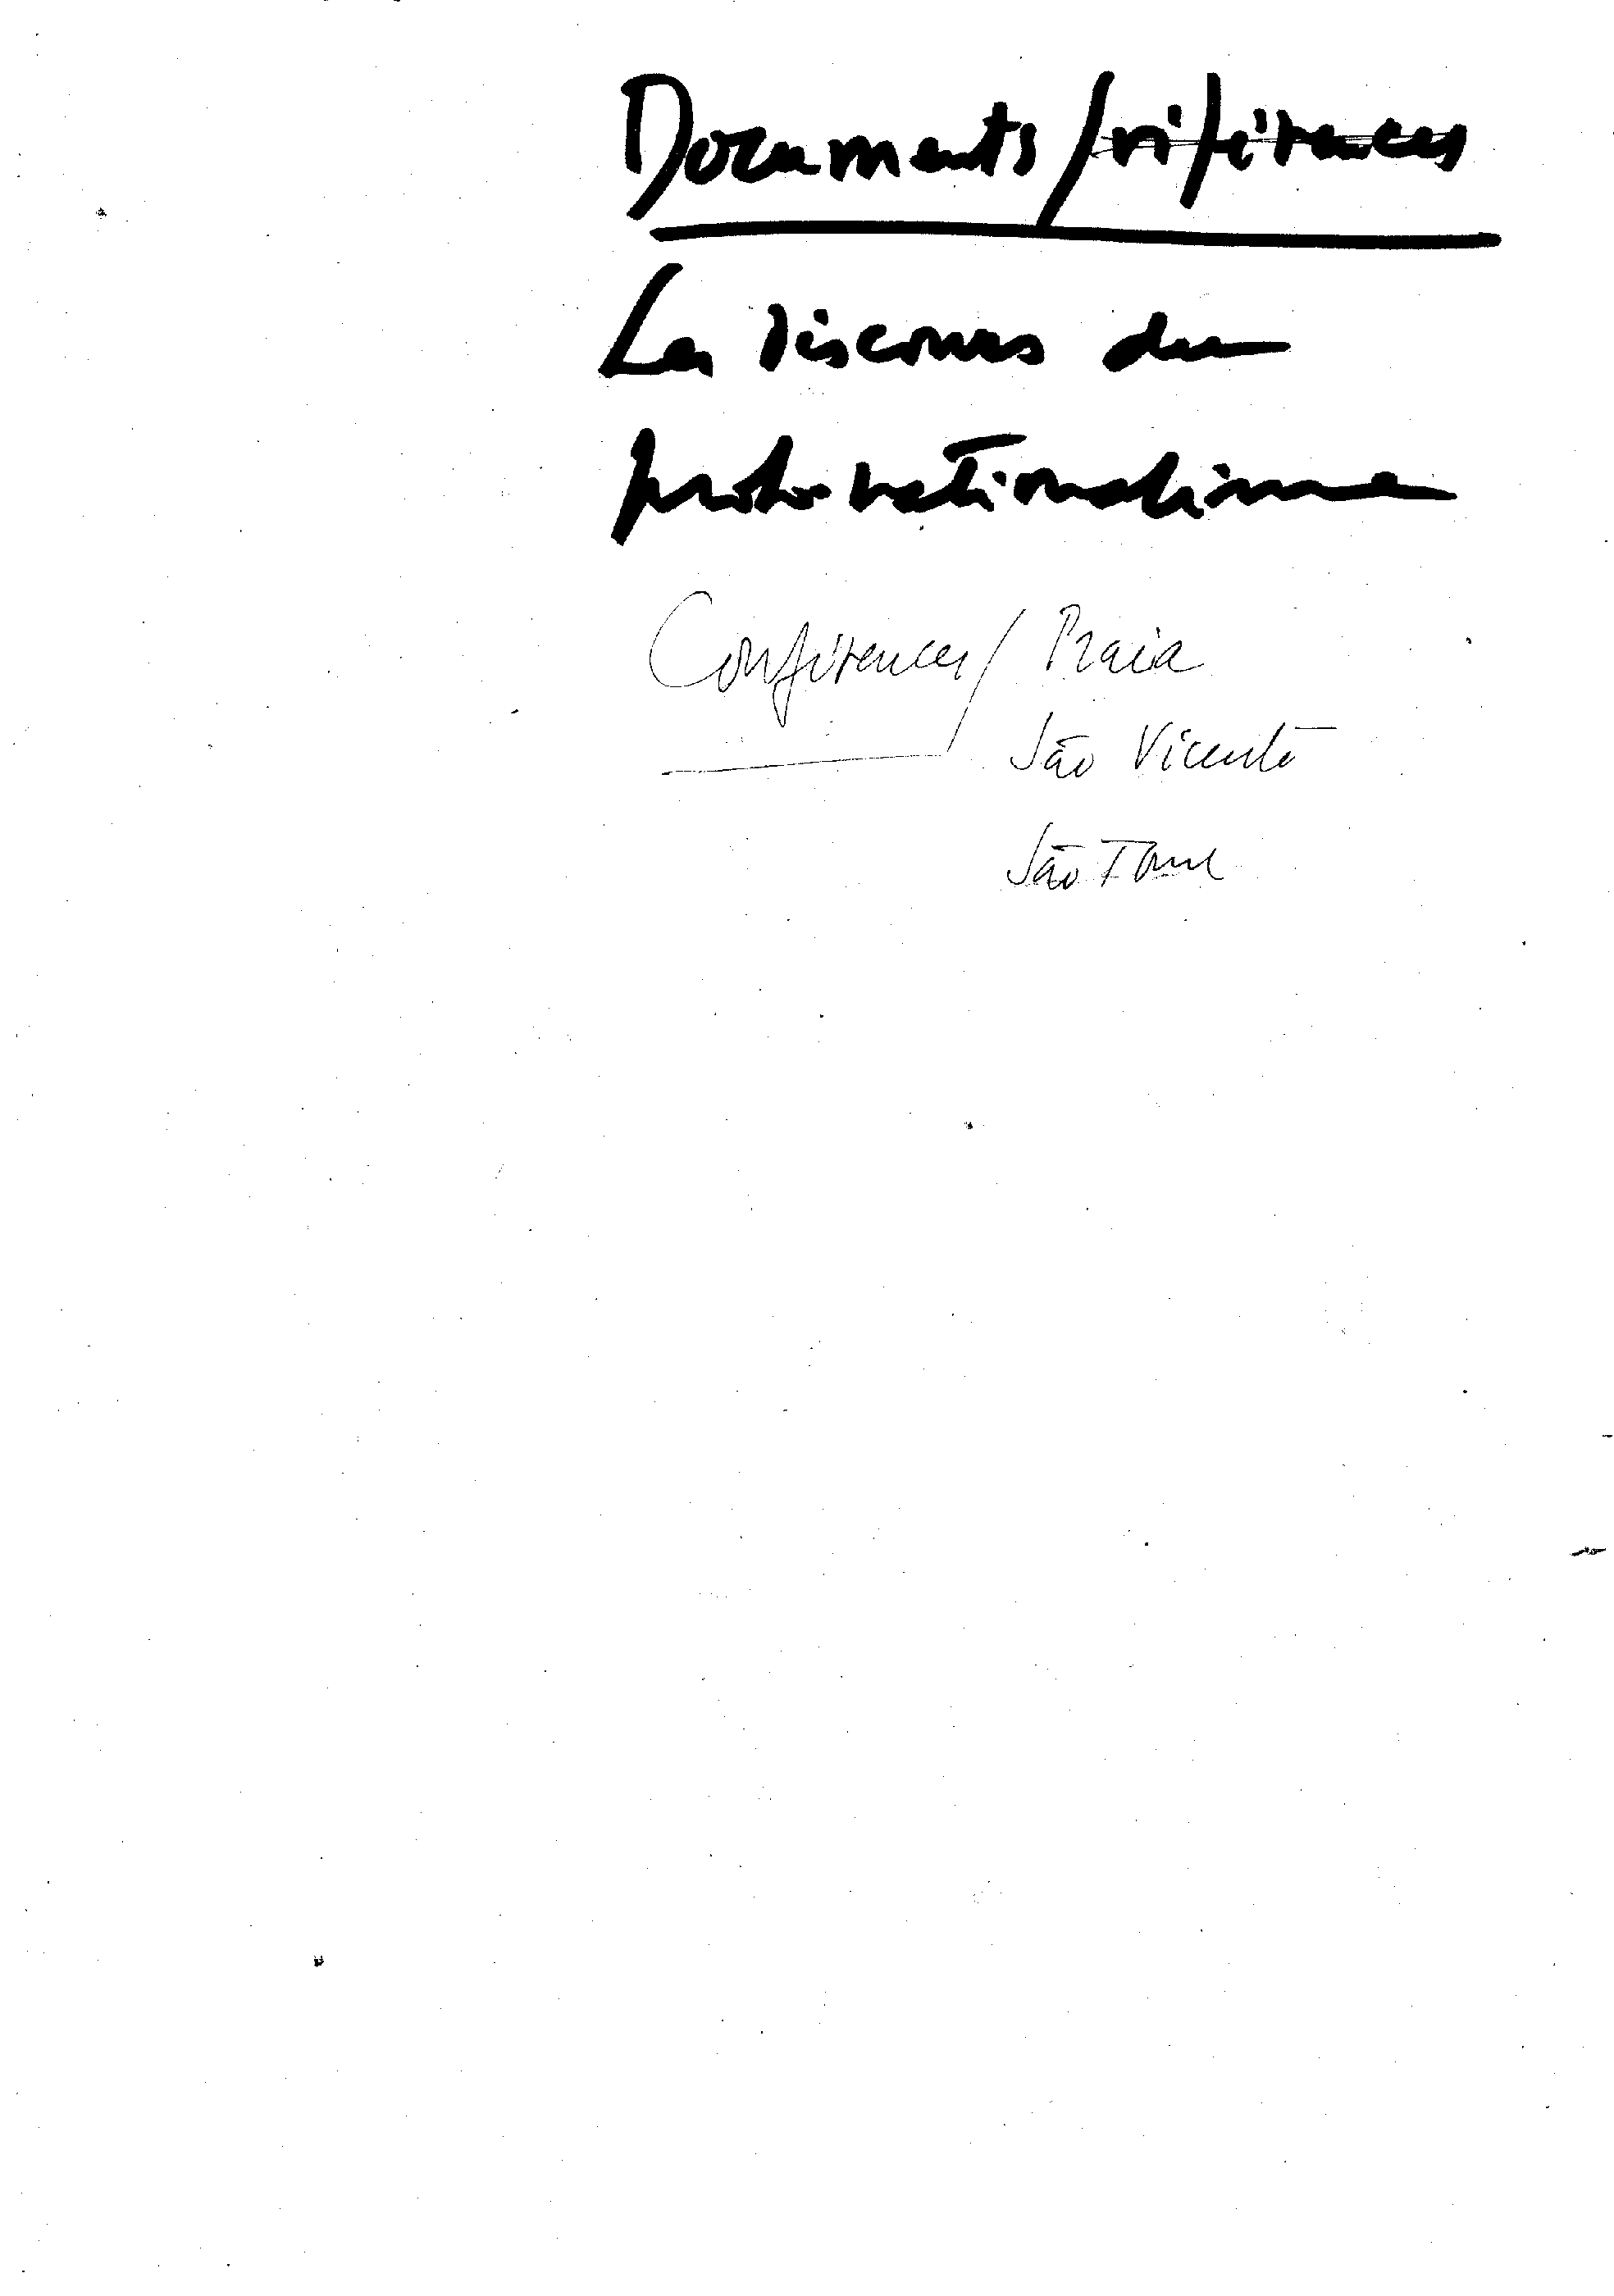 Documents/références
Les discours du
proto-nationalisme
Conférences/ Praia
São Vicente
São Tomé